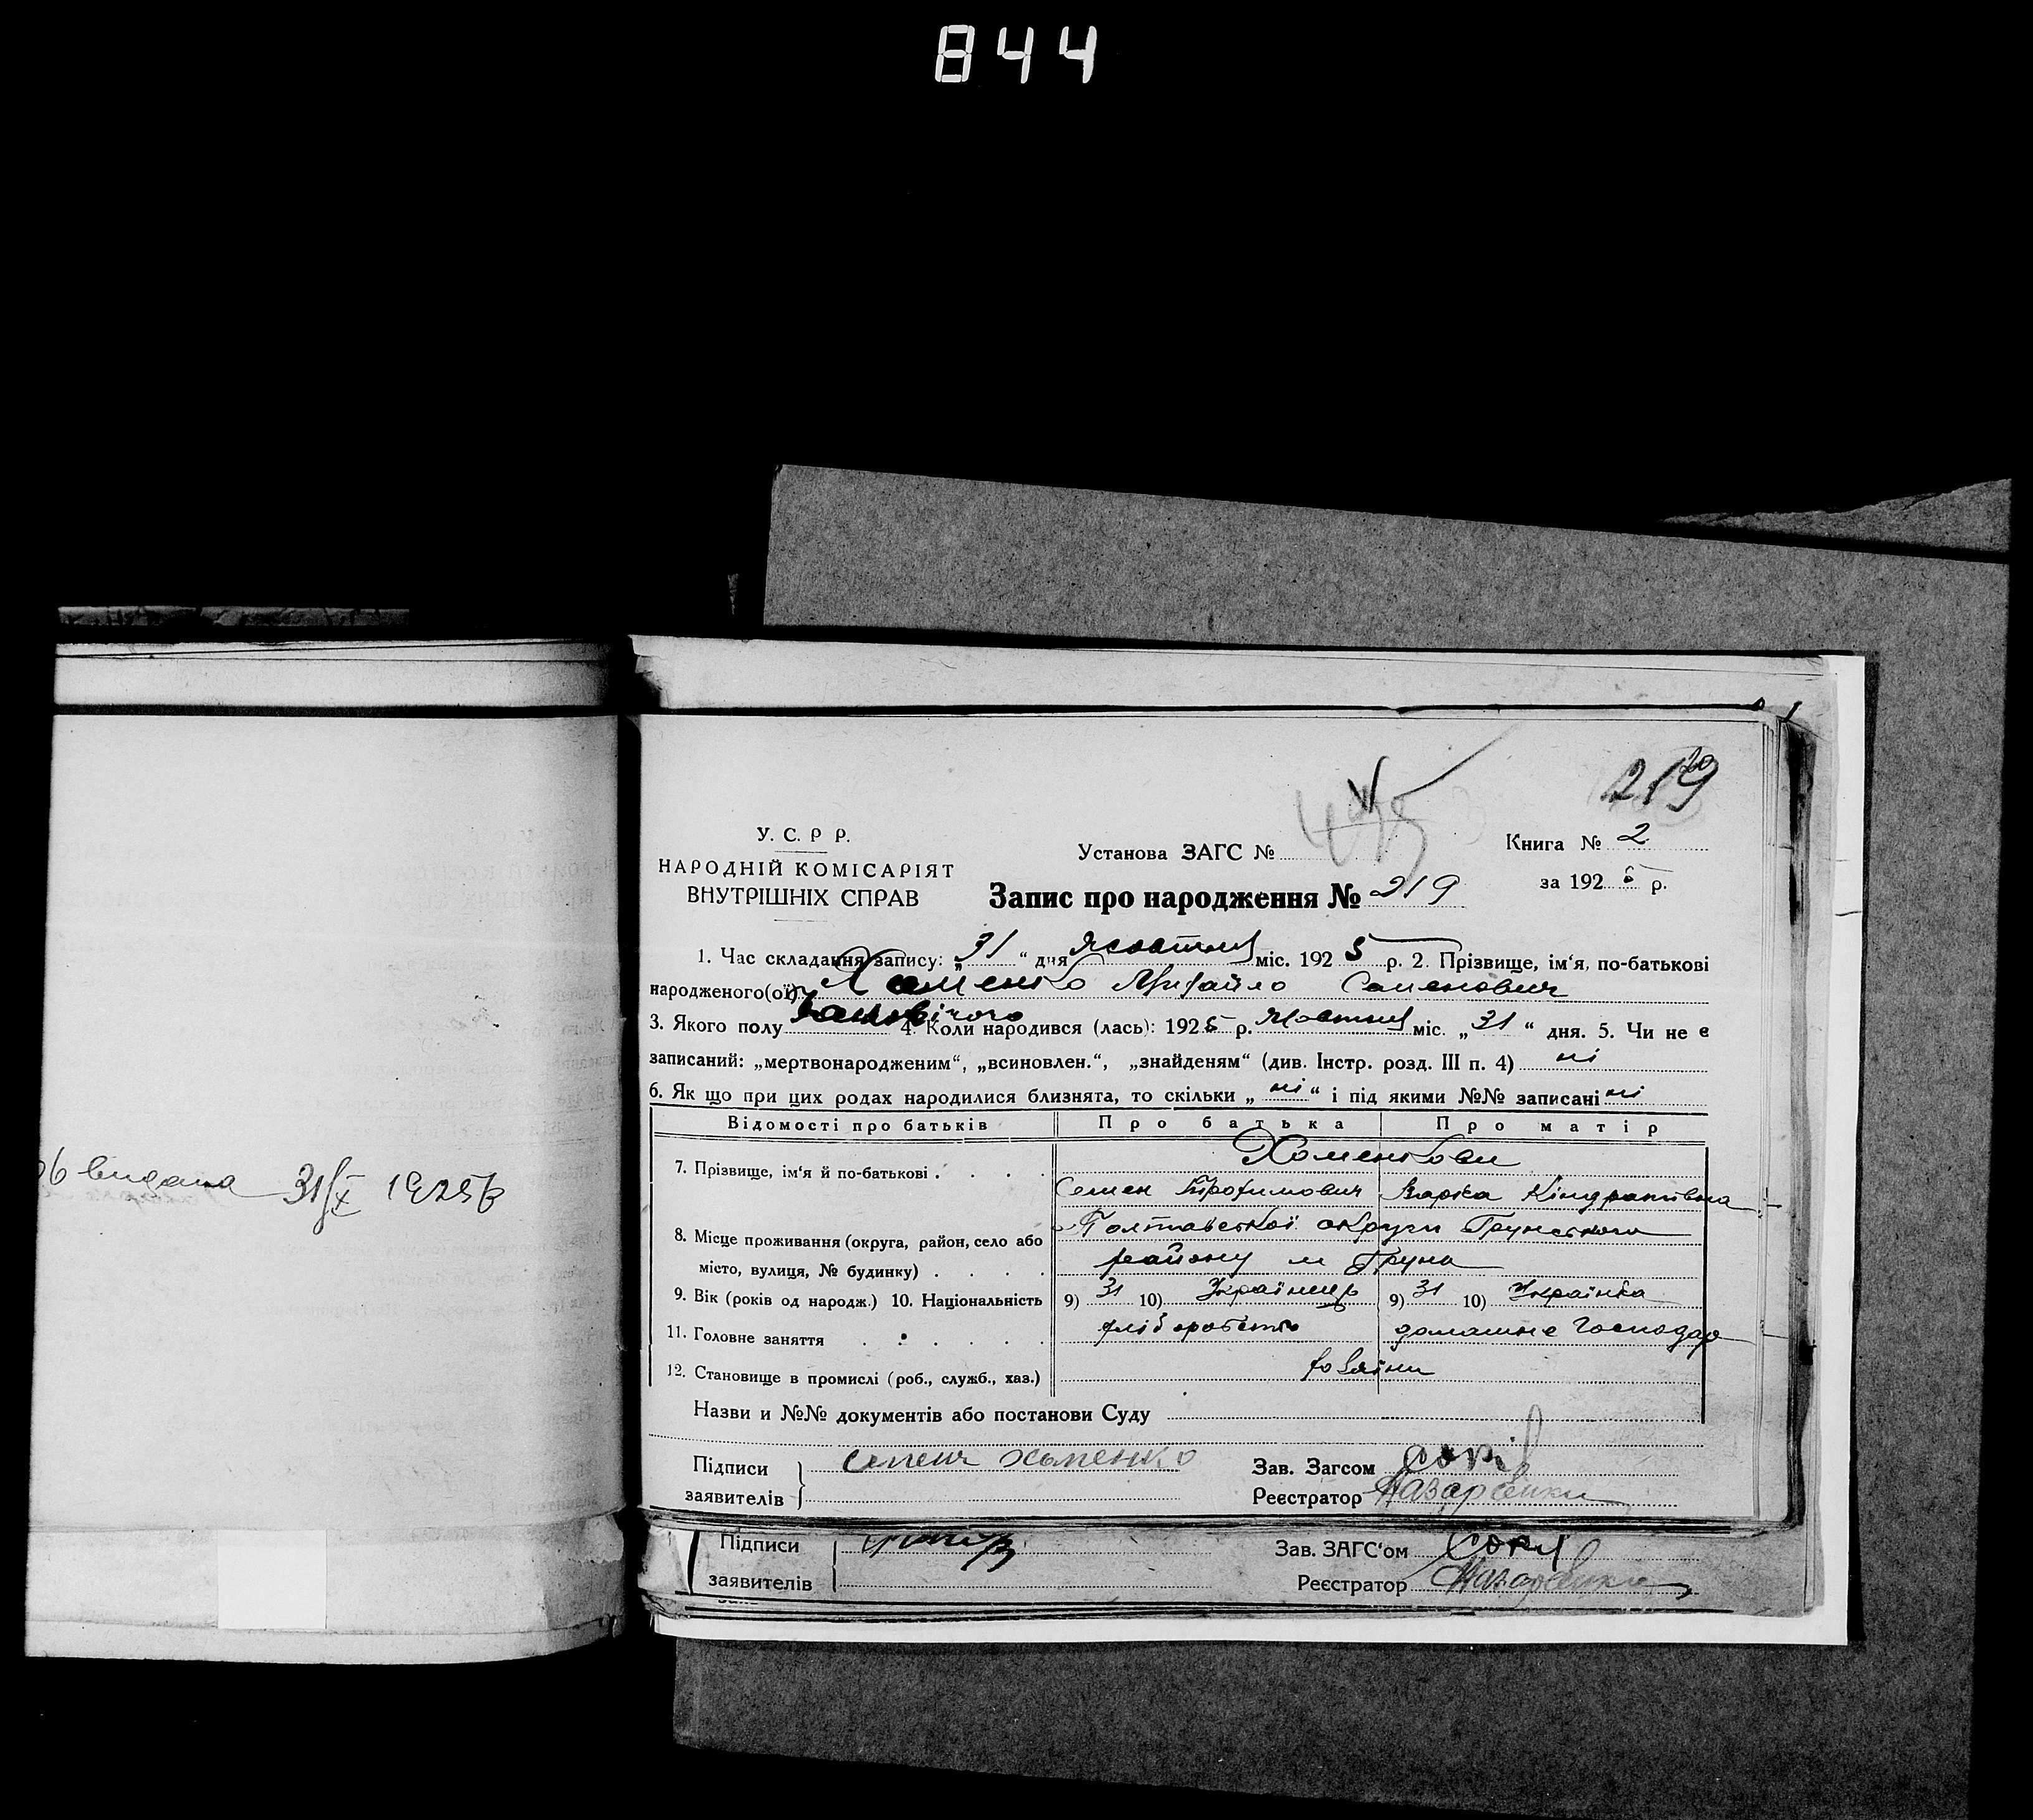 844
219
У. С. Р Р.
НАРОДНІЙ КОМІСАРІЯТ
ВНУТРІШНІХ СПРАВ
Установа ЗАГС №
Книга № 2
за 192 5 р.
Запис про народження № 219
1. Час складання запису: „ 31 “ дня Жовтня міс. 192 5 р. 2. Прізвище, ім‘я, по-батькові
народженого(ої) Хоменко Михайло Семенович
3. Якого полу чоловічого 4. Коли народився (лась): 192 5 р. Жовтня міс. „ 31 “ дня. 5. Чи не є
записаний: „мертвонародженим“, „всиновлен.“, „знайденям“ (див. Інстр. розд. III п. 4) ні
6. Як що при цих родах народилися близнята, то скільки „ ні “ і під якими №№ записані ні
Відомості про батьків Про батька Про матір
7. Прізвище, ім‘я й по-батькові . . . . Хоменкови
Семен Трохимович Варка Кіндратівна
8. Місце проживання (округа, район, село або Полтавської округи Грунського
місто, вулиця, № будинку) . . . . району м Груна
9. Вік (років од народж.) 10. Національність 9) 31 10) Українець 9) 31 10) Українка
11. Головне заняття . . . . . . хліборобство домашнє господар
12. Становище в промислі (роб., служб., хаз.) хозяїни
Назви и №№ документів або постанови Суду
Підписи
заявителів
семен хоменко
Зав. Загсом
Реєстратор Назаренки
видана 31/X 1925
Підписи
заявителів
Зав. ЗАГС‘ом
Реєстратор